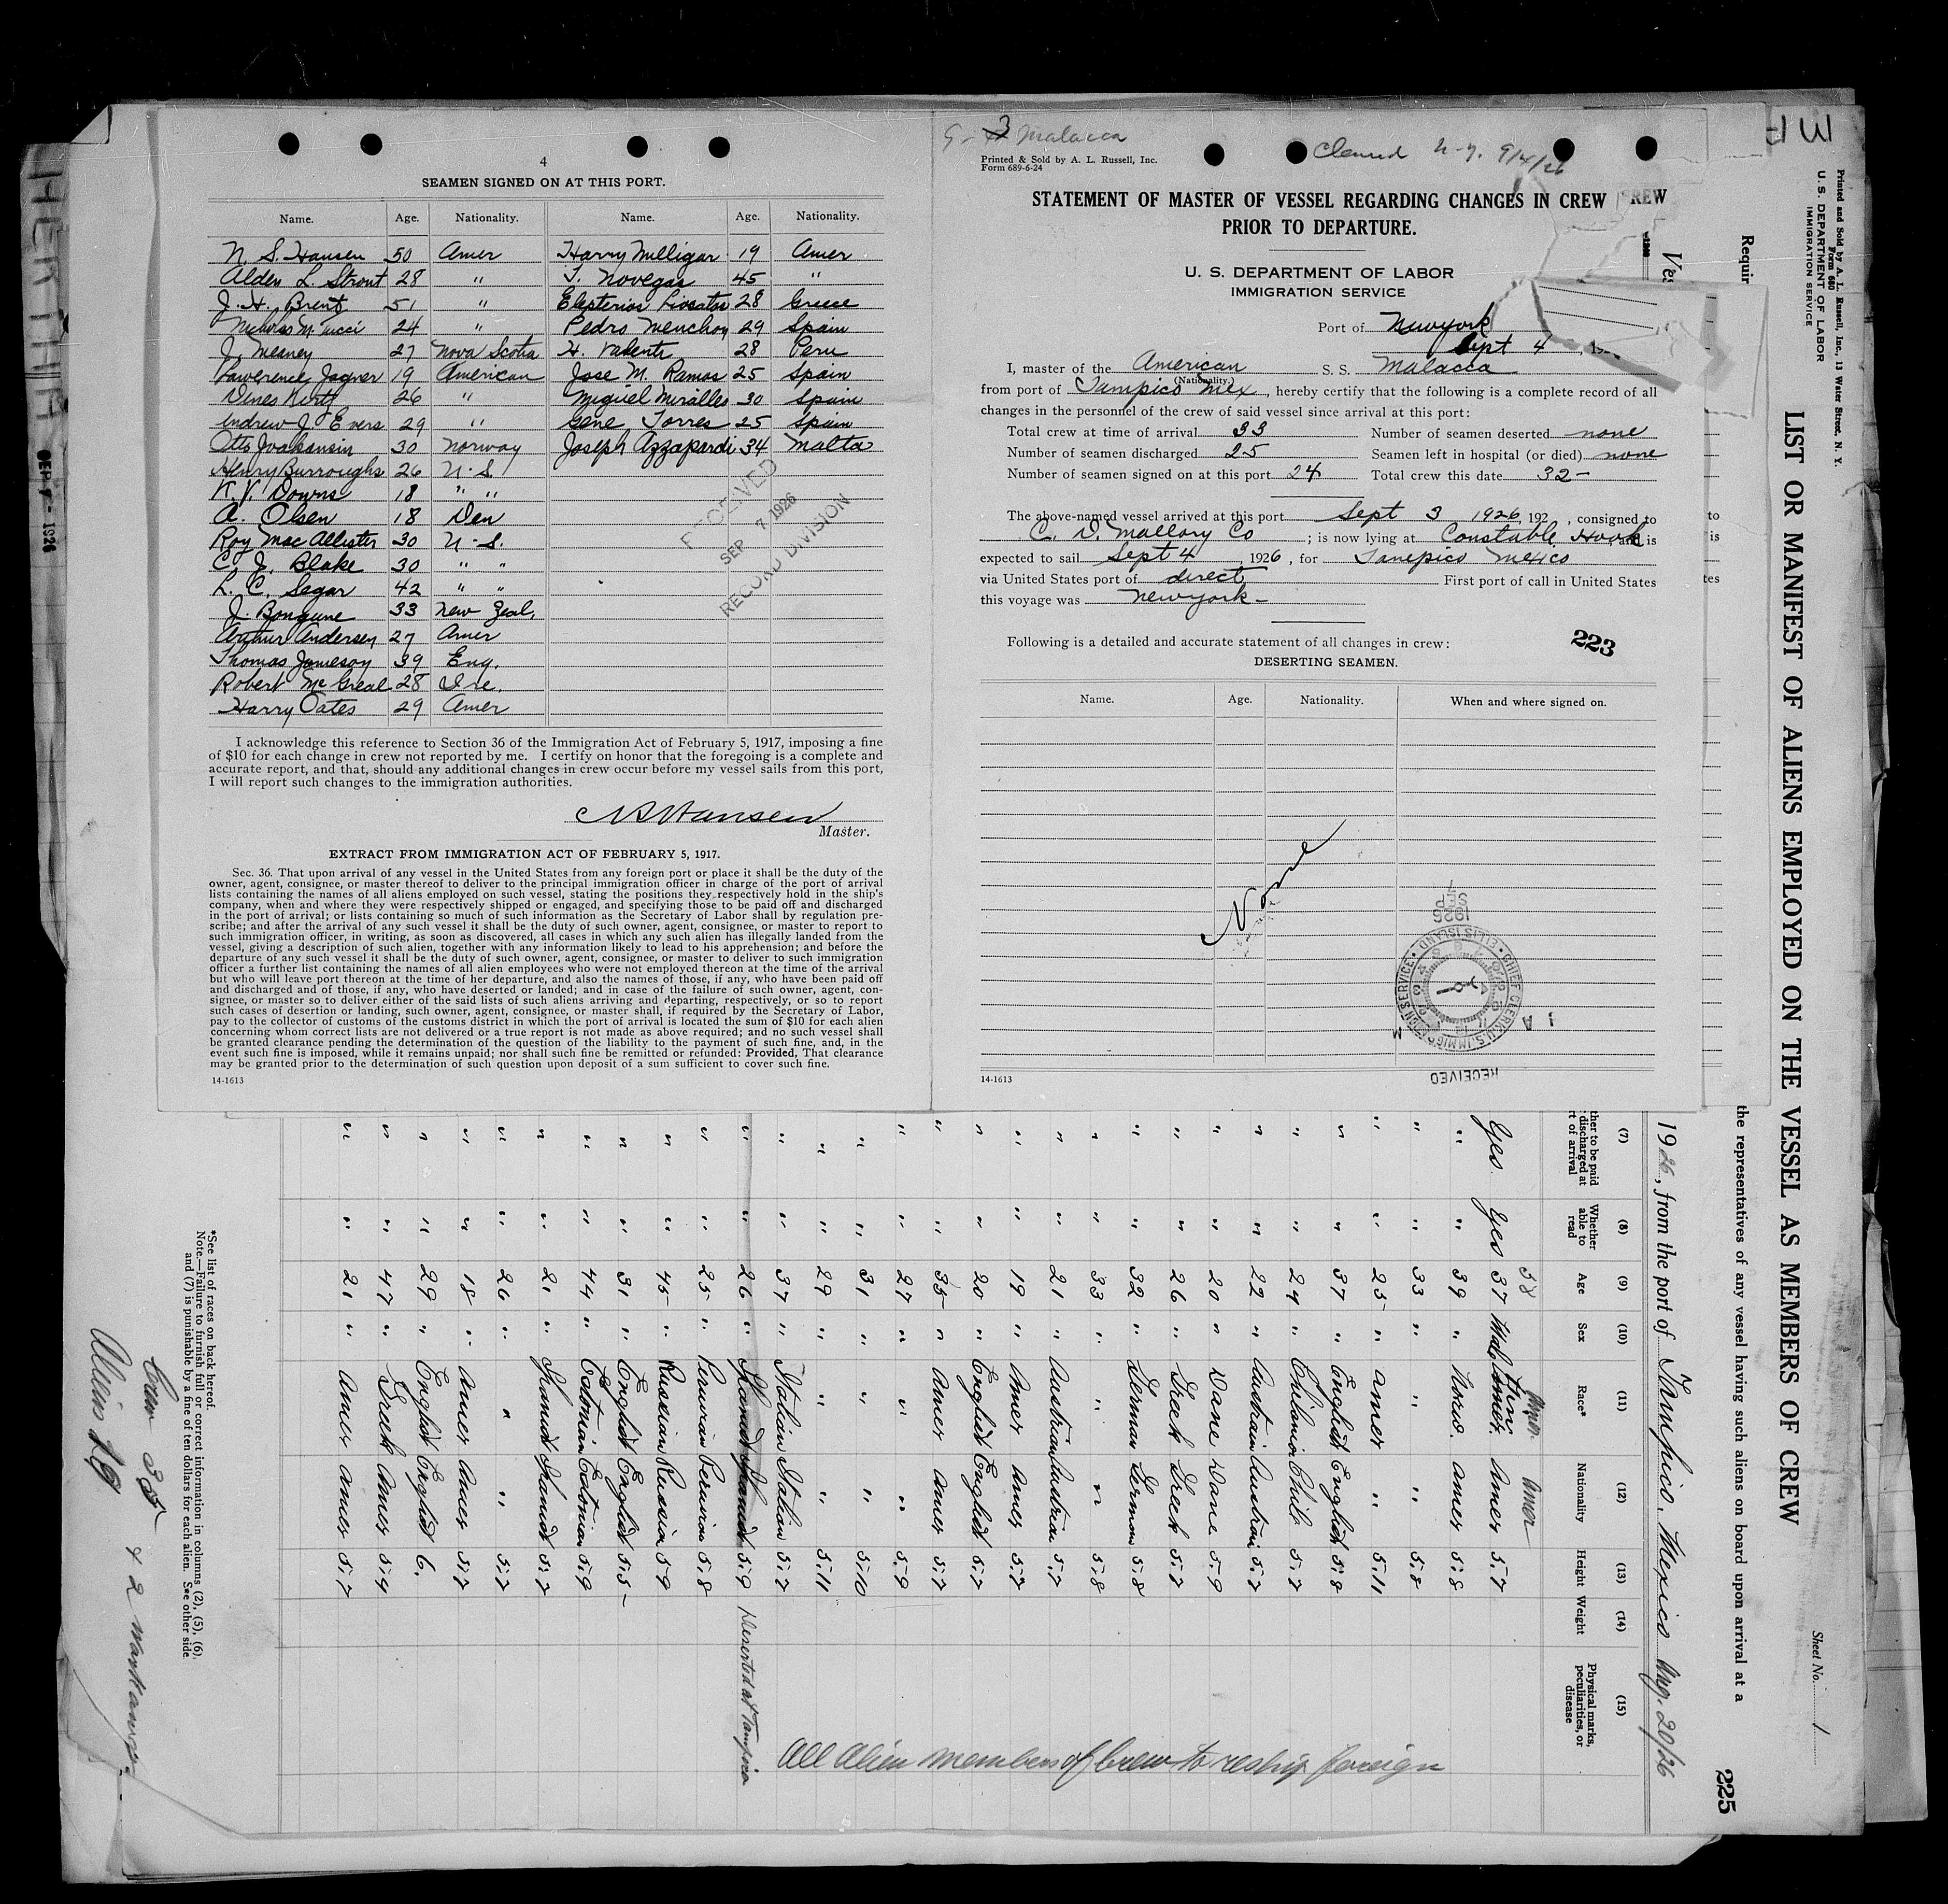 4
SEAMEN SIGNED ON AT THIS PORT.
Name. Age. Nationality. Name. Age. Nationality.
N. S. Hansen 50 Amer Harry Milligar 19 Amer
Alden L. Strout 28 " T. Novegas 45 "
J. H. Brent 51 " Elesterios 28 Greece
Nicholas 24 " Pedro Menchon 29 Spain
J. Meaney 27 Nova Scotia H. Valente 28 Peru
Lawerence Jagner 19 American Jose M. Ramos 25 Spain
26 " Miguel Miralles 30 Spain
Andrew J. Evers 29 " Gene Torres 25 Spain
Otto Joakansin 30 Norway Joseph Azzapardi 34 Malta
Henry Burroughs 26 U.S.
K. V. Downs 18 " "
A. Olsen 18 Den
Roy MacAllister 30 U.S.
C. J. Blake 30 " "
L. C. Segar 42 " "
J. Bongune 33 New Zeal.
Arthur Andersen 27 Amer
Thomas Jameson 39 Eng.
Robert McGreal 28 Ire.
Harry Oates 29 Amer
RECEIVED
SEP 7 1926
RECORD DIVISION
I acknowledge this reference to Section 36 of the Immigration Act of February 5, 1917, imposing a fine
of $10 for each change in crew not reported by me. I certify on honor that the foregoing is a complete and
accurate report, and that, should any additional changes in crew occur before my vessel sails from this port,
I will report such changes to the immigration authorities.
N S Hansen
Master.
EXTRACT FROM IMMIGRATION ACT OF FEBRUARY 5, 1917.
Sec. 36. That upon arrival of any vessel in the United States from any foreign port or place it shall be the duty of the
owner, agent, consignee, or master thereof to deliver to the principal immigration officer in charge of the port of arrival
lists containing the names of all aliens employed on such vessel, stating the positions they respectively hold in the ship's
company, when and where they were respectively shipped or engaged, and specifying those to be paid off and discharged
in the port of arrival; or lists containing so much of such information as the Secretary of Labor shall by regulation pre-
scribe; and after the arrival of any such vessel it shall be the duty of such owner, agent, consignee, or master to report to
such immigration officer, in writing, as soon as discovered, all cases in which any such alien has illegally landed from the
vessel, giving a description of such alien, together with any information likely to lead to his apprehension; and before the
departure of any such vessel it shall be the duty of such owner, agent, consignee, or master to deliver to such immigration
officer a further list containing the names of all alien employees who were not employed thereon at the time of the arrival
but who will leave port thereon at the time of her departure, and also the names of those, if any, who have been paid off
and discharged and of those, if any, who have deserted or landed; and in case of the failure of such owner, agent, con-
signee, or master so to deliver either of the said lists of such aliens arriving and departing, respectively, or so to report
such cases of desertion or landing, such owner, agent, consignee, or master shall, if required by the Secretary of Labor,
pay to the collector of customs of the customs district in which the port of arrival is located the sum of $10 for each alien
concerning whom correct lists are not delivered or a true report is not made as above required; and no such vessel shall
be granted clearance pending the determination of the question of the liability to the payment of such fine, and, in the
event such fine is imposed, while it remains unpaid; nor shall such fine be remitted or refunded: Provided, That clearance
may be granted prior to the determination of such question upon deposit of a sum sufficient to cover such fine.
14-1613
3 Malacca
Cleared N-Y. 9/4/26
Printed & Sold by A. L. Russell, Inc.
Form 689-6-24
STATEMENT OF MASTER OF VESSEL REGARDING CHANGES IN CREW
PRIOR TO DEPARTURE.
U. S. DEPARTMENT OF LABOR
IMMIGRATION SERVICE
Port of New York
Sept 4, 192
I, master of the American S. S. Malacca
(Nationality)
from port of Tampico Mex, hereby certify that the following is a complete record of all
changes in the personnel of the crew of said vessel since arrival at this port:
Total crew at time of arrival 33 Number of seamen deserted none
Number of seamen discharged 25 Seamen left in hospital (or died) none
Number of seamen signed on at this port 24 Total crew this date 32-
The above-named vessel arrived at this port Sept 3 1926, 192 , consigned to
C. D. Mallory Co ; is now lying at Constable Hook and is
expected to sail Sept 4, 1926, for Tampico Mexico
via United States port of direct First port of call in United States
this voyage was New york -
Following is a detailed and accurate statement of all changes in crew:
223
DESERTING SEAMEN.
Name. Age. Nationality. When and where signed on.
None
SEP 7 1926
CHIEF CLERK U.S. IMMIGRATION SERVICE • ELLIS ISLAND
RECEIVED
14-1613
REW
Requir
to
is
tes
Printed and Sold by A. L. Russell, Inc., 13 Water Street, N. Y.
Form 680
U. S. DEPARTMENT OF LABOR
IMMIGRATION SERVICE
Sheet No. 1
LIST OR MANIFEST OF ALIENS EMPLOYED ON THE VESSEL AS MEMBERS OF CREW
the representatives of any vessel having such aliens on board upon arrival at a
225
1926, from the port of Tampico. Mexico Aug. 20/26
(7) (8) (9) (10) (11) (12) (13) (14) (15)
ther to be paid discharged at rt of arrival Whether able to read Age Sex Race* Nationality Height Weight Physical marks, peculiarities, or disease
58 Amer Amer
Yes Yes 37 Amer 5.7
" " 39 " Norw. Amer 5.8
" " 33 " " " 5.8
" " 25 " Amer " 5.11
" " 37 " English English 5.8
" " 24 " Chilanian Chile 5.7
" " 22 " Austrian Austrian 5.7
" " 20 " Dane Dane 5.9
" " 26 " Greek Greek 5.7
" " 32 " German German 5.8
" " 33 " " " 5.8
" " 21 " Austrian Austrian 5.7
" " 19 " Amer Amer 5.7
" " 20 " English English 5.7
" " 35 " Amer Amer 5.7
" " 27 " " " 5.9
" " 31 " " " 5.10
" " 29 " " " 5.11
" " 37 " Italian Italian 5.7
" " 26 " Spanish Spanish 5.9 Deserted at Tampico
" " 25 " Peruvian Peruvian 5.8
" " 45 " Russian Russian 5.9
" " 31 " English English 5.5
" " 44 " Estonian Estonian 5.9
" " 21 " Spanish Spanish 5.7
" " 26 " " " 5.7
" " 18 " Amer Amer 5.7
" " 29 " English English 6.
" " 47 " Greek Amer 5.4
" " 21 " Amer Amer 5.7
All Alien members of Crew to reship foreign
*See list of races on back hereof.
Note.—Failure to furnish full or correct information in columns (2), (5), (6),
and (7) is punishable by a fine of ten dollars for each alien. See other side.
Crew 35 + 2 workaways
Aliens 19
SEP 7 - 1926